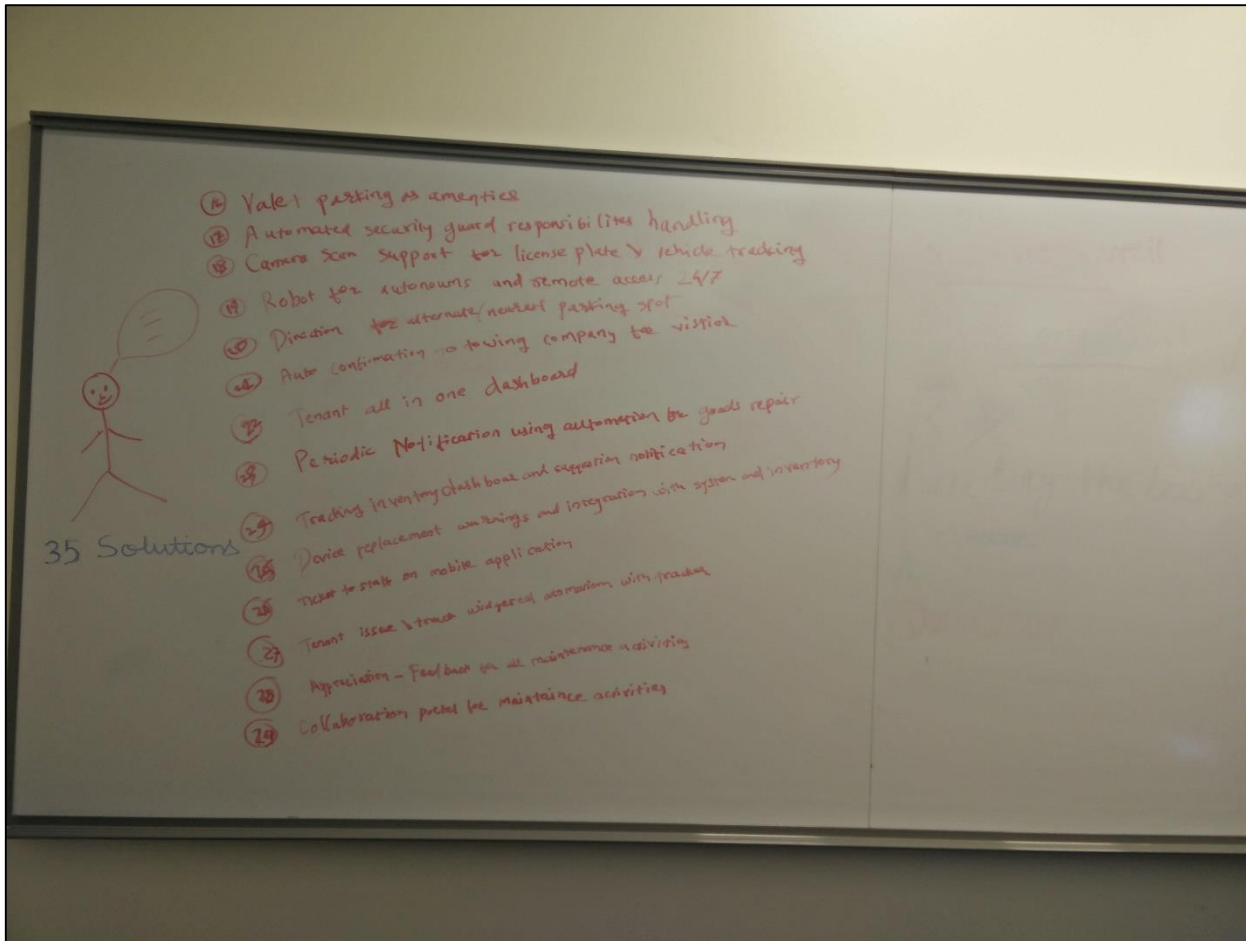 16 Valet parking as amenties
17 Automated security guard responsibilites handling
18 Camera scan support for license plate & vehicle tracking
19 Robot for autonoums and remote access 24/7
20 Direction for alternate/nearest parking spot
21 Auto confirmation to towing company for
22 Tenant all in one dashboard
23 Periodic Notification using automation for goods repair
24 Tracking inventory dashboar and notification
25 Device replacement warnings and integration with system and inventory
26 Ticket to staff on mobile application
27 Tenant issue & track with tracker
28 Appreciation - Feedback for all maintenance activities
29 Collaboration portal for maintaince activities
35 Solutions